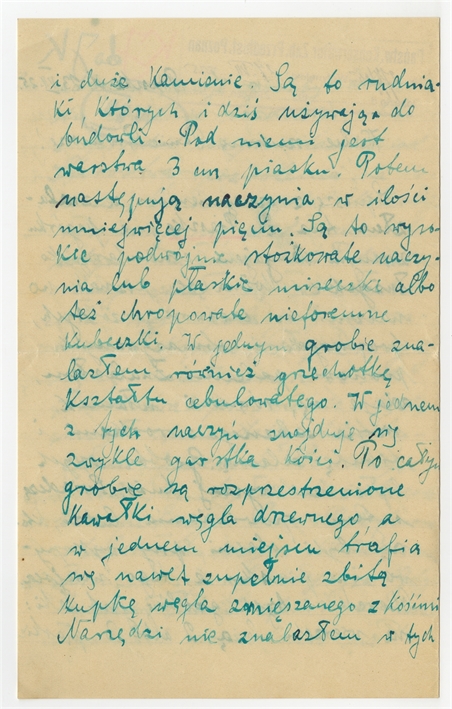 i duże kamienie. Są to rudnia-
ki, których i dziś używają do
budowli. Pod niemi jest
warstwa 3 cm piasku. Potem
następują naczynia w ilości
mniejwięcej pięciu. Są to wyso-
kie podwójnie stożkowate naczy-
nia lub płaskie miseczki albo
też chropowate nieforemne
kubeczki. W jednym grobie zna-
lazłem również grzechotkę
kształtu cebulowatego. W jednem
z tych naczyń znajduje się
zwykle garstka kości. Po całym
grobie są rozprzestrzenione
kawałki węgla drzewnego, a
w jednem miejscu trafia
się nawet zupełnie zbitą
kupkę węgla zmięszanego z kośćmi
Narzędzi nie znalazłem w tych